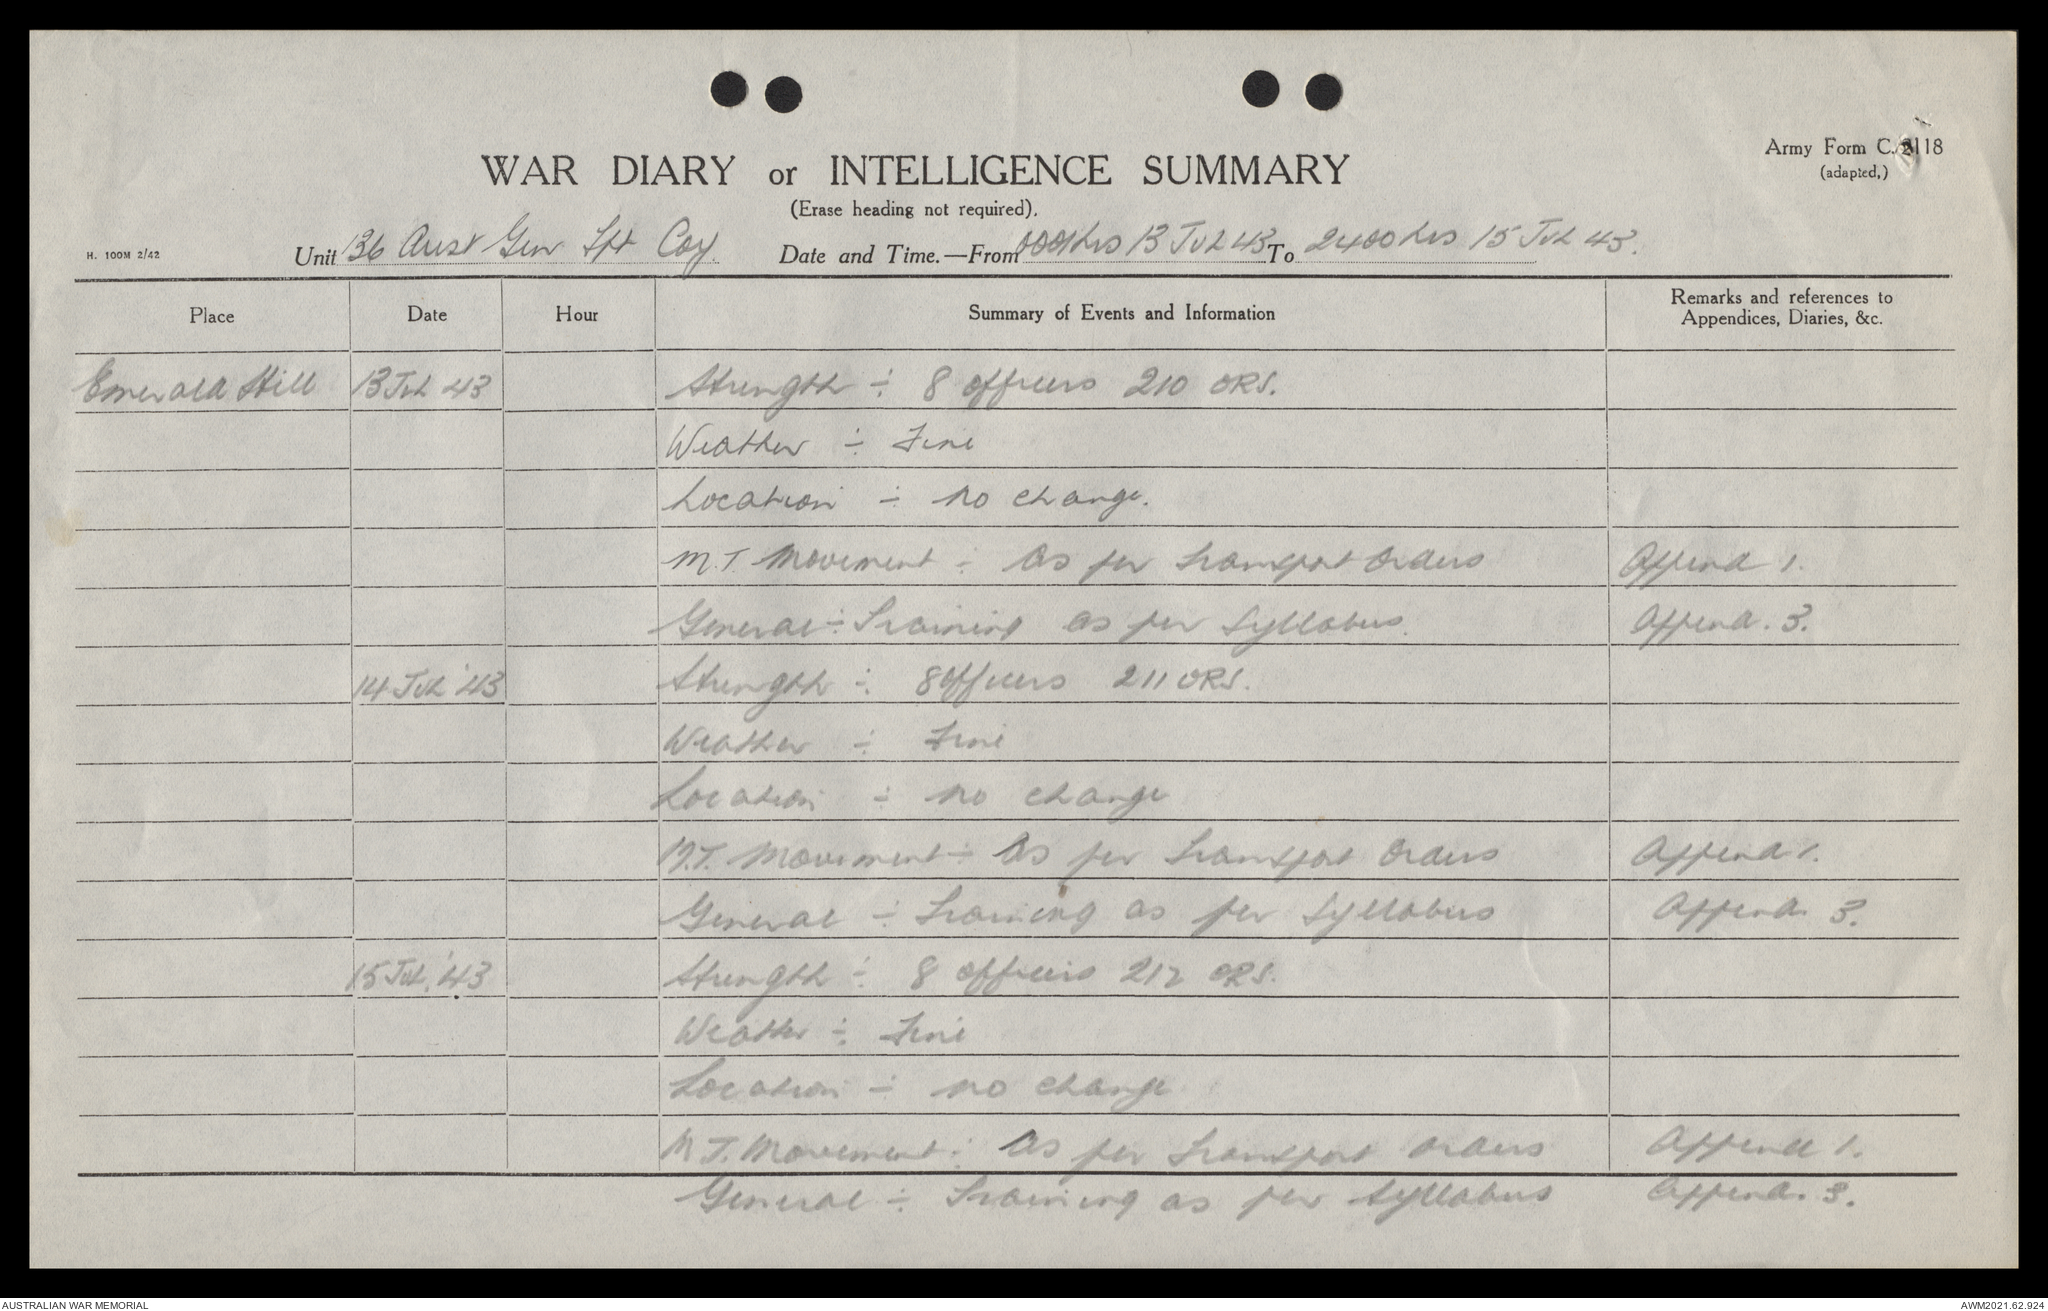 Army Form C.2118
(adapted,)
WAR DIARY or INTELLIGENCE SUMMARY
(Erase heading not required).
H. 100M 2/42
Unit 136 Aust Gen Tpt Coy. Date and Time.—From 0001hrs 13 Jul 43 To 2400 hrs 15 Jul 43.
Place Date Hour Summary of Events and Information Remarks and references to
Appendices, Diaries, &c.
Emerald Hill 13 Jul 43 Strength ÷ 8 officers 210 ORS.
Weather ÷ Fine
Location ÷ no change.
M.T. Movement ÷ As per Transport Orders Append 1.
General ÷ Training as per Syllabus. Append. 3.
14 Jul '43 Strength ÷ 8 officers 211 ORS.
Weather ÷ Fine
Location ÷ no change
M.T. Movement ÷ As per Transport Orders Append 1.
General ÷ Training as per Syllabus Append. 3.
15 Jul. '43 Strength ÷ 8 officers 212 ORS.
Weather ÷ Fine
Location ÷ no change
M.T. Movement ÷ As per Transport orders Append 1.
General ÷ Training as per Syllabus Append. 3.
AUSTRALIAN WAR MEMORIAL AWM2021.62.924